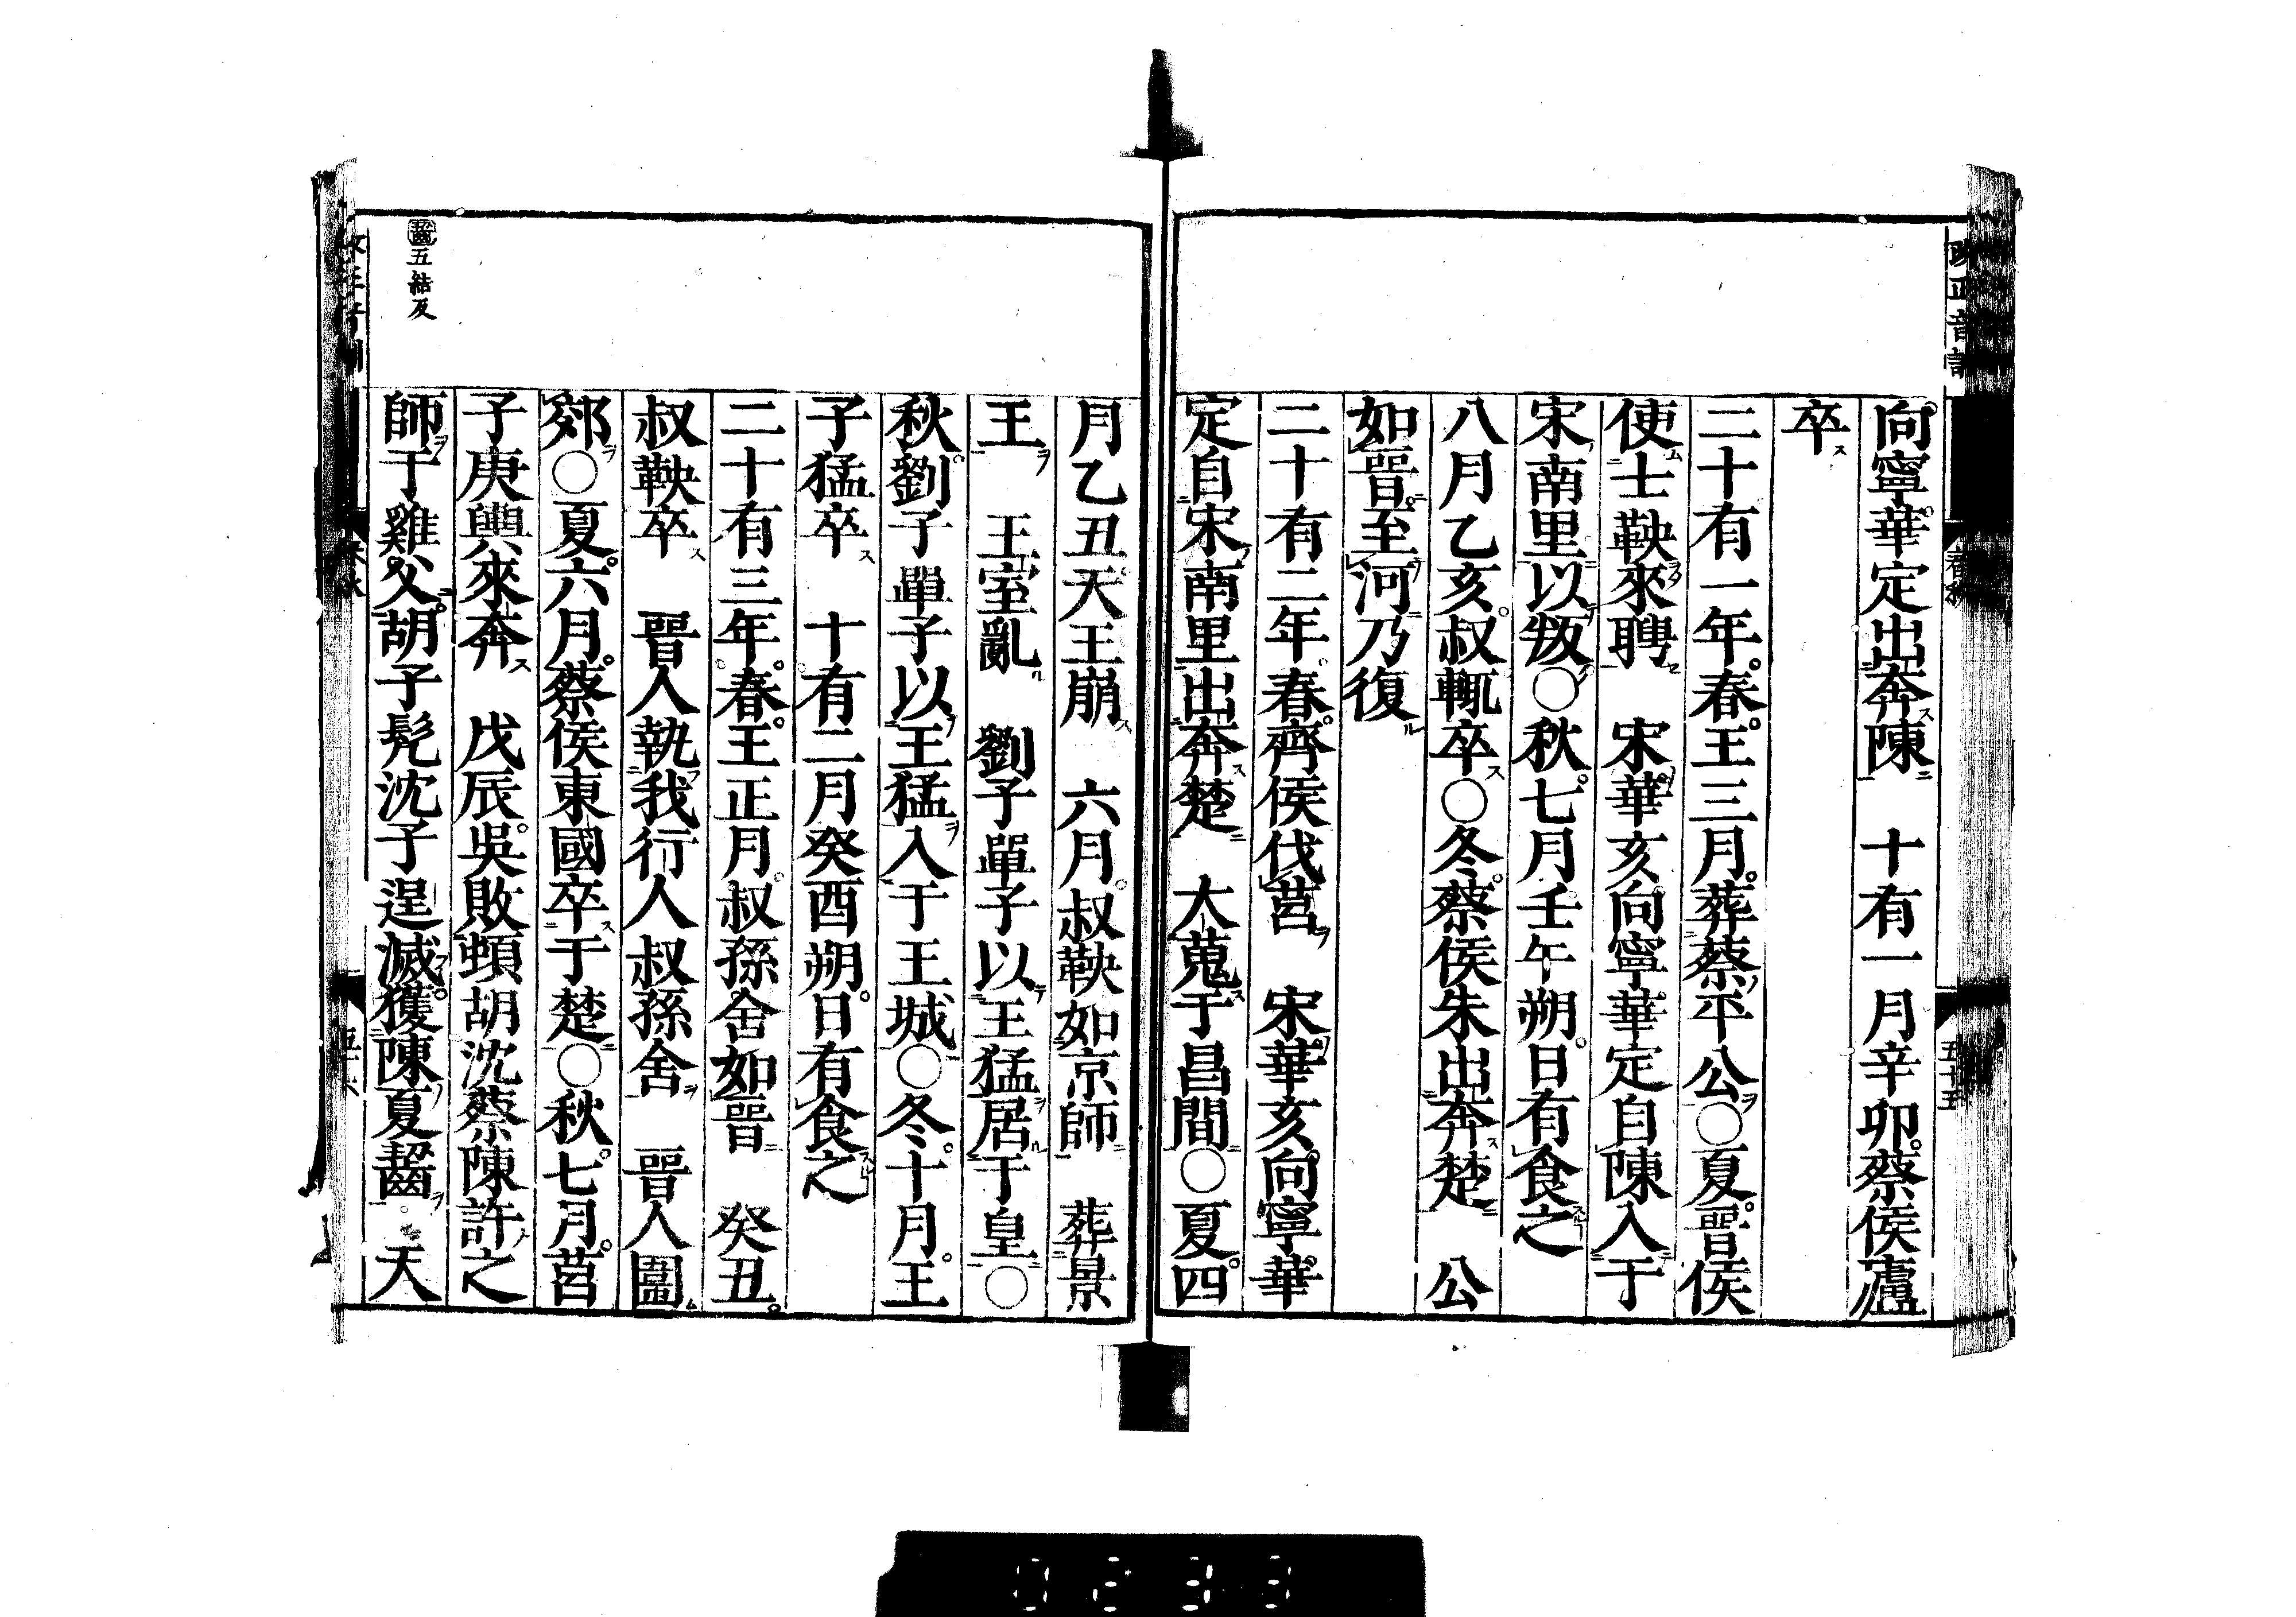 向寧華定出奔陳　十有一月辛卯蔡侯廬
卒
二十有一年春王三月葬蔡平公○夏晉侯
使士鞅來聘　宋華亥向寧華定自陳入于
宋南里以叛○秋七月壬午朔日有食之
八月乙亥叔輒卒○冬蔡侯朱出奔楚　公
如晉至河乃復
二十有二年春齊侯伐莒　宋華亥向寧華
定自宋南里出奔楚　大蒐于昌間○夏四
月乙丑天王崩　六月叔鞅如京師　葬景
王　王室亂　劉子單子以王猛居于皇○
秋劉子單子以王猛入于王城○冬十月王
子猛卒　十有二月癸酉朔日有食之
二十有三年春王正月叔孫舍如晉　癸丑
叔鞅卒　晉人執我行人叔孫舍　晉人圍
郊○夏六月蔡侯東國卒于楚○秋七月莒
子庚輿來奔　戊辰吳敗頓胡沈蔡陳許之
師于雞父胡子髡沈子逞滅獲陳夏齧　天
齧五結反
春秋
五十五
0233